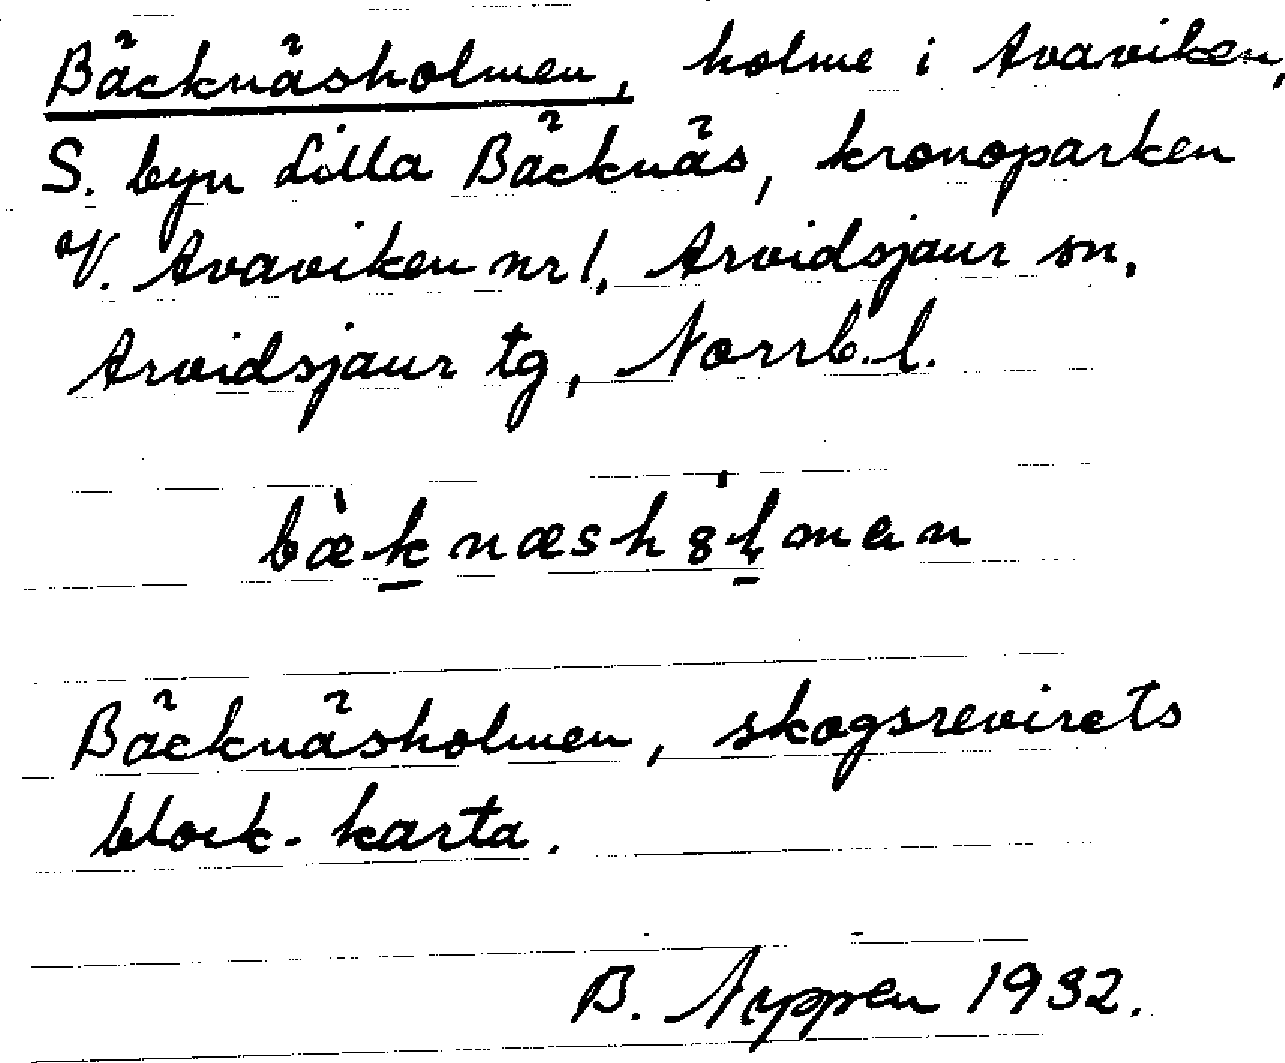 Bäcknäsholmen, holme i Avaviken,
S. byn Lilla Bäcknäs, kronoparken
V. Avaviken nr 1, Arvidsjaur sn,
Arvidsjaur tg, Norrb. l.
bæ̀k̲næshȯl̲mɐn
Bäcknäsholmen, skogsrevirets
block-karta.
B. Nyppen 1932.